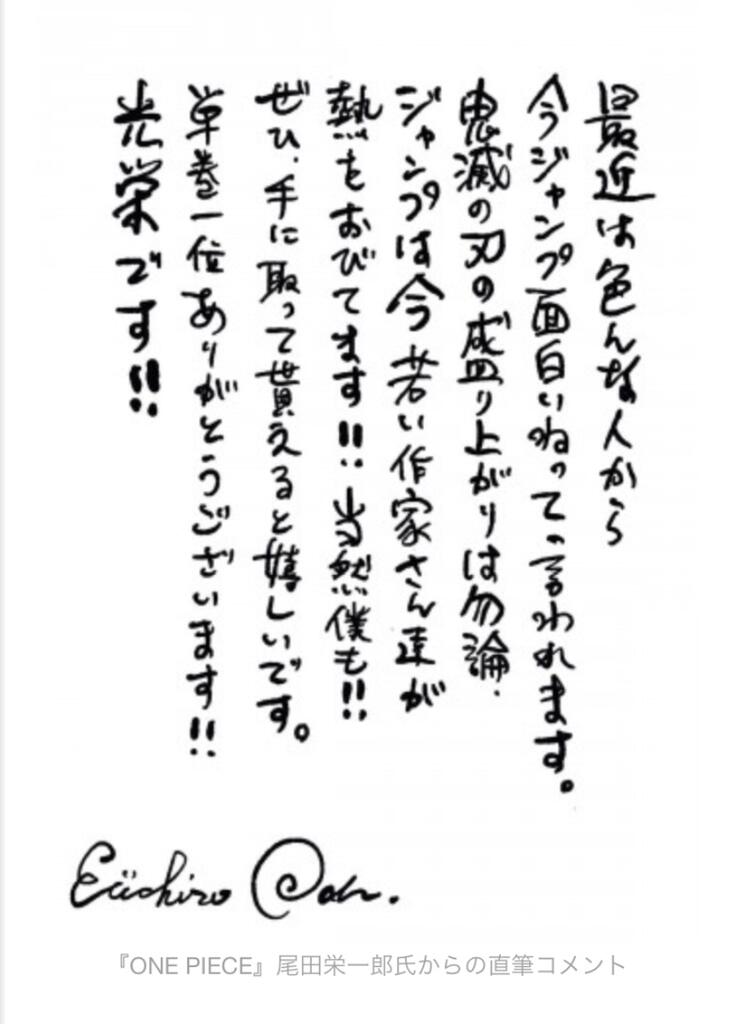 最近は色んな人から
今ジャンプ面白いねって言われます。
鬼滅の刃の盛り上がりは勿論、
ジャンプは今若い作家さん達が
熱をおびてます!!当然僕も!!
ぜひ、手に取って貰えると嬉しいです。
単巻一位ありがとうございます!!
光栄です!!
Eiichiro Oda.
『ONE PIECE』尾田栄一郎氏からの直筆コメント